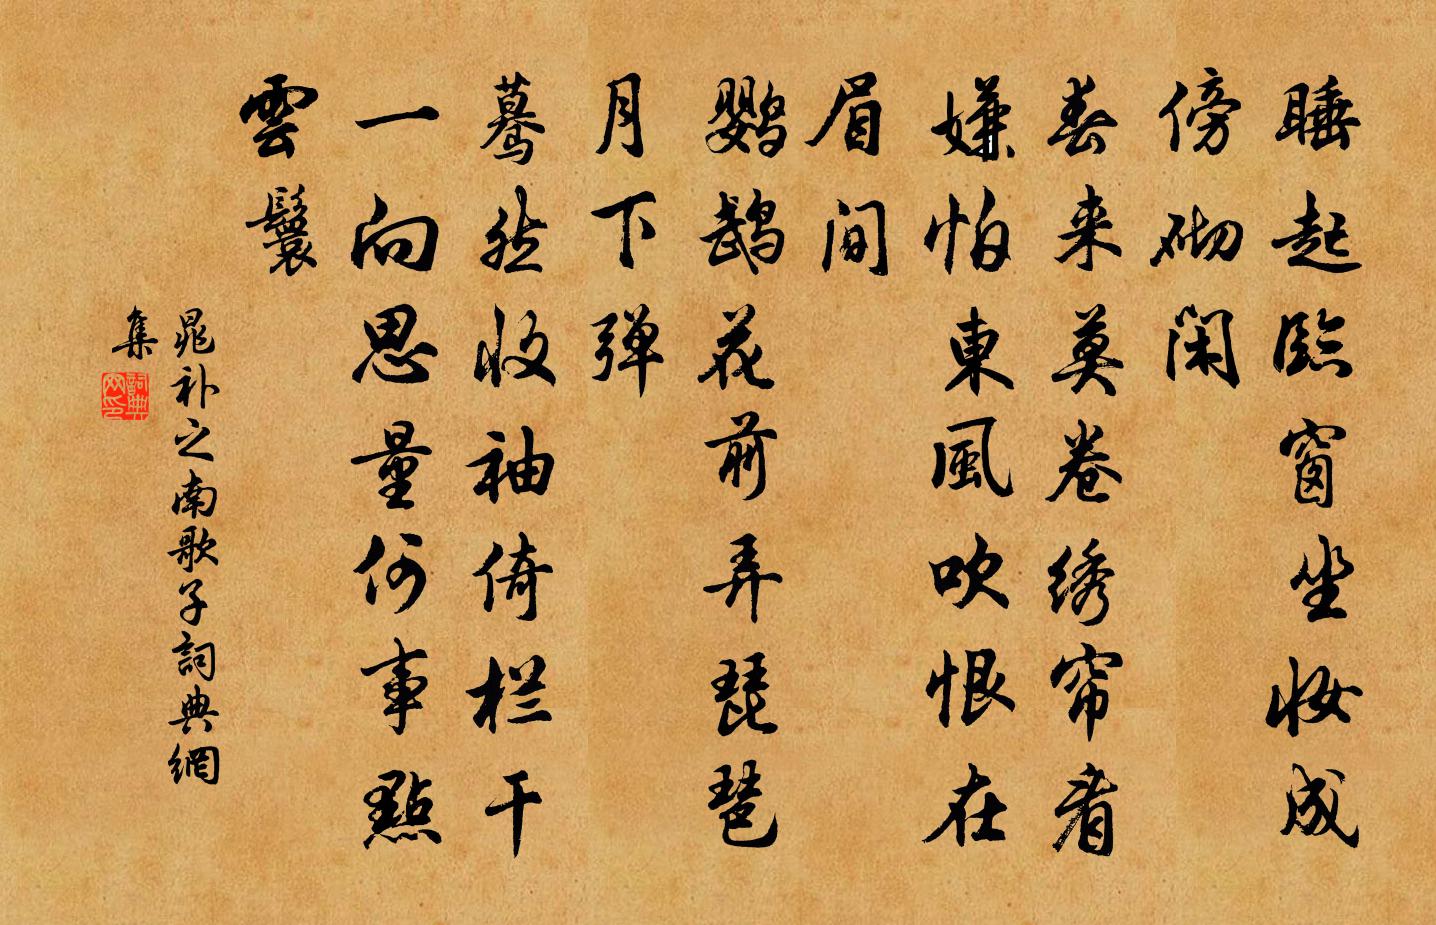 睡起臨窗坐妆成
傍砌闲
春来莫卷绣帘看
嫌怕東風吹恨在
眉間
鹦鹉花前弄琵琶
月下弹
蓦然收袖倚栏干
一向思量何事點
雲鬟
晁补之南歌子詞典網
集
詞典
网印